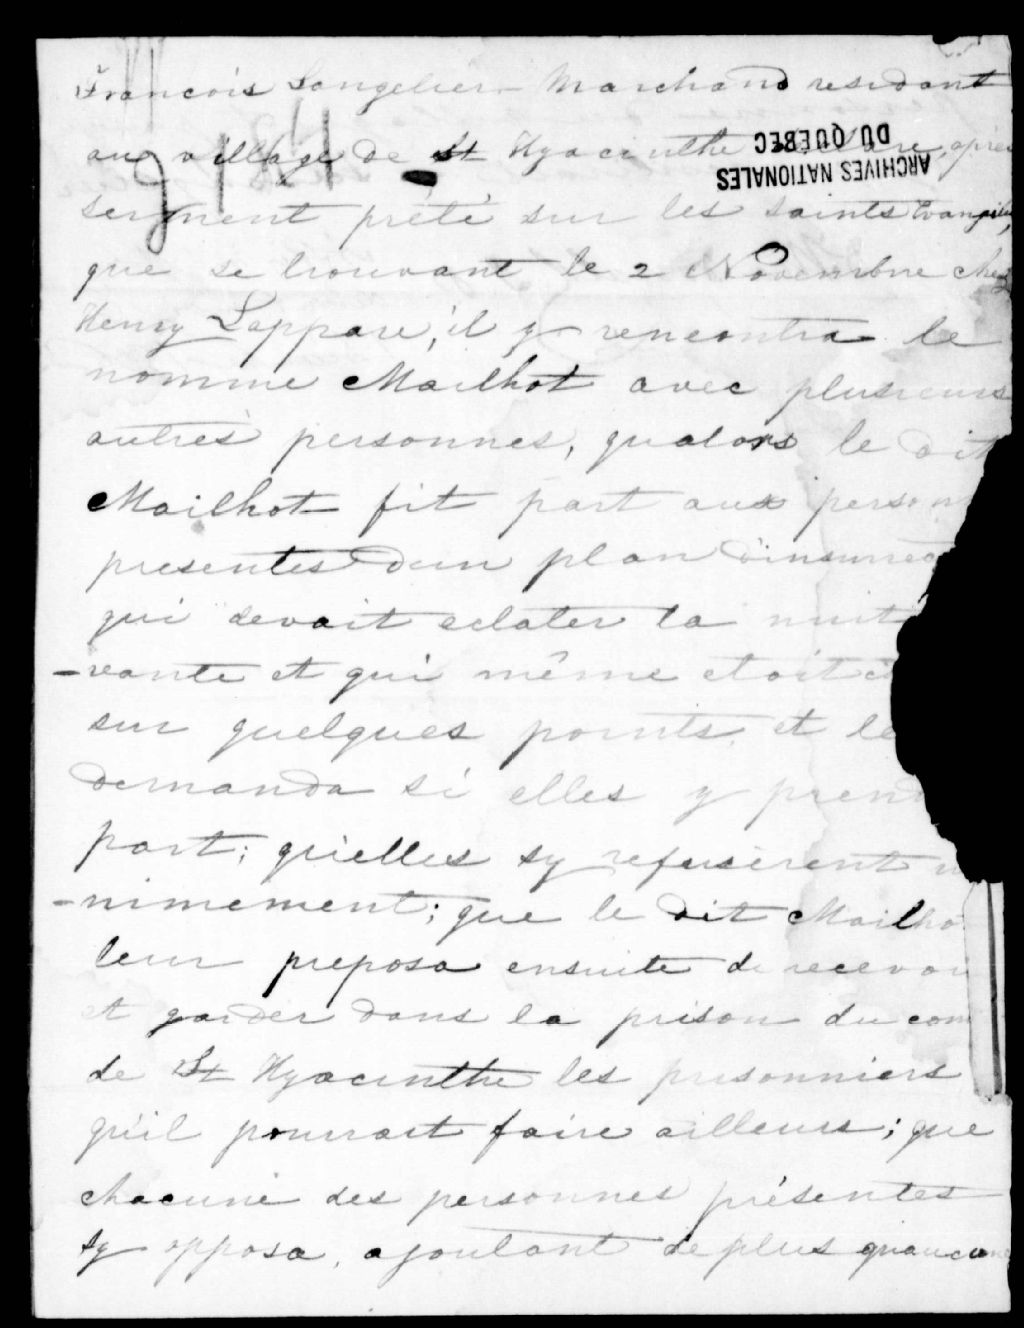 François Langelier - Marchand residant
au village de St Hyacinthe après
serment prêté sur les saints Evangiles,
que se trouvant le 2 Novembre chez
Henry Lappare, il y rencontra le
nommé Mailhot avec plusieurs
autres personnes, qualors le dit
Mailhot fit part aux person
presentes dun plan d'insurrec
qui devait eclater la nuit
-vante et qui même etoit
sur quelques points, et le
demanda si elles y prend
part; qu'elles sy refuserent
-nimement; que le dit Mailho
leur preposa ensuite de recevoi
et garder dans la prison du com
de St Hyacinthe les prisonniers
qu'il pourrait faire ailleurs; que
chacune des personnes présentes
sy opposa, ajoutant de plus quaucune
9134
ARCHIVES NATIONALES
DU QUÉBEC